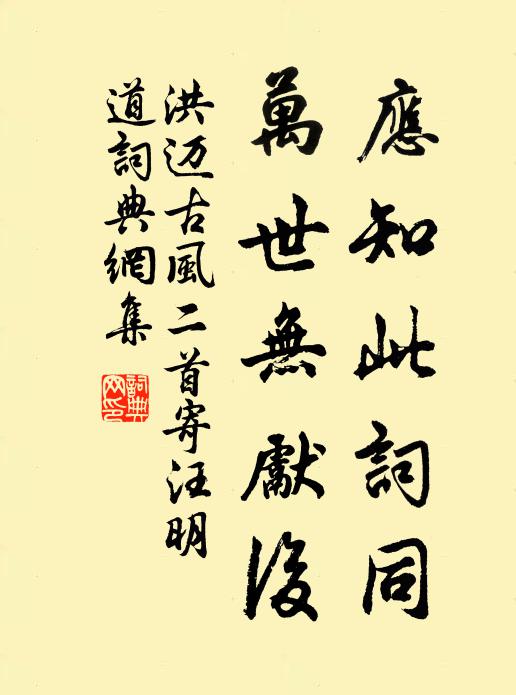 應知此詞同
萬世無獻後
洪迈古風二首寄汪明
道詞典網集
詞典
网印